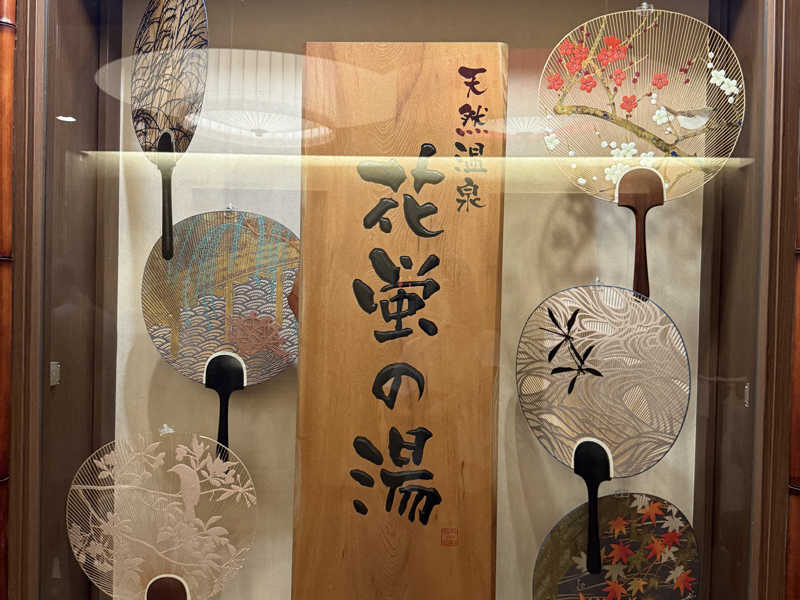 天然温泉
花蛍の湯